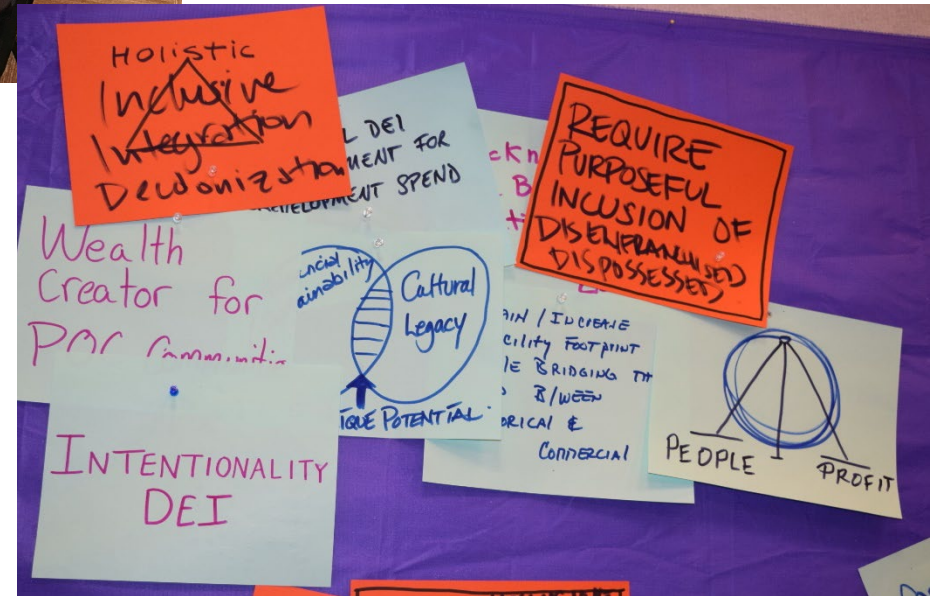 Holistic
Inclusive
Integration
Decolonization
DEI
MENT FOR
SPEND
REQUIRE
PURPOSEFUL
INCLUSION OF
DISENFRANCHISED
DISPOSSESSED
Wealth
Creator for
POC Communitie
Cultural
Legacy
POTENTIAL
AIN / INCREASE
CILITY FOOTPRINT
BRIDGING TH
B/WEEN
ORICAL &
COMMERCIAL
INTENTIONALITY
DEI
PEOPLE
PROFIT